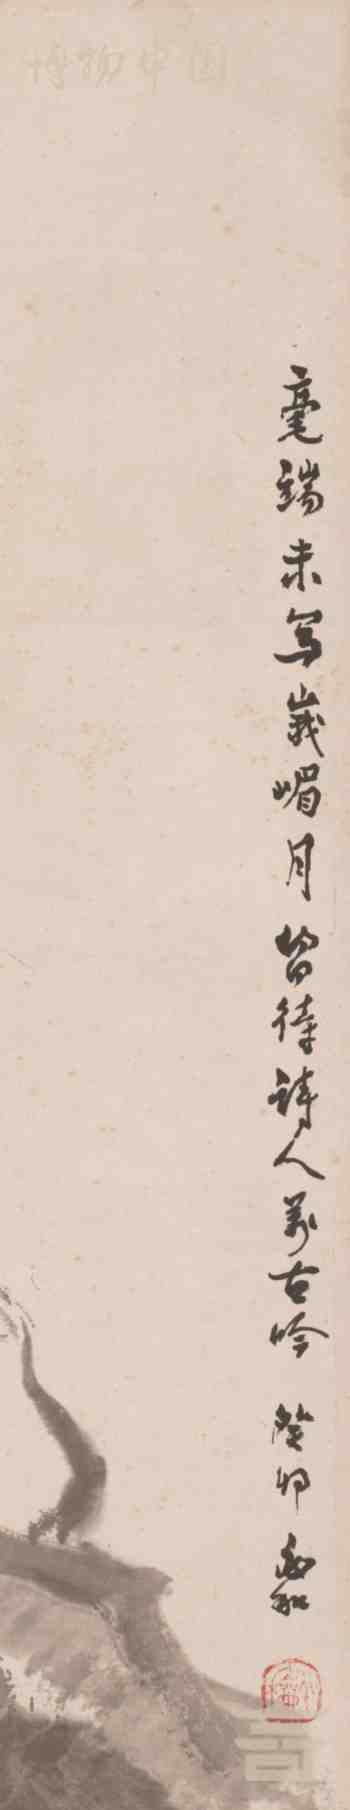 博物中国
毫端未写峩嵋月留待詩人万古吟 癸卯